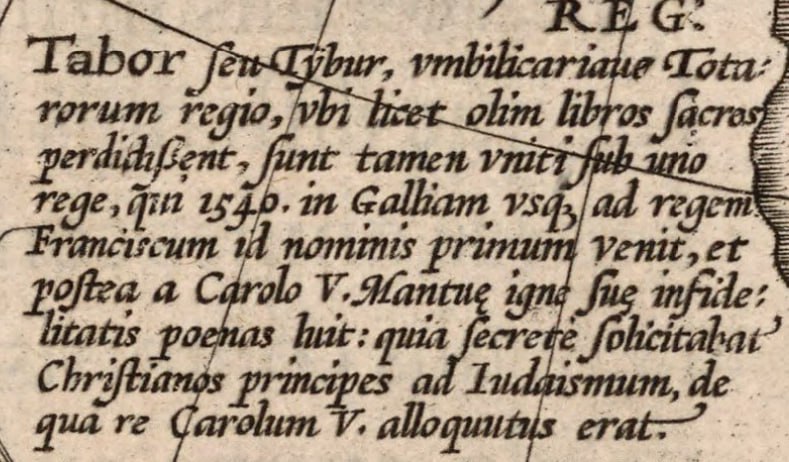 REG:
Tabor ſeu Tÿbur, vmbilicariaue Tota:
rorum regio, vbi licet olim libros ſacros
perdidiſſent, ſunt tamen vniti ſub uno
rege, qui 1540. in Galliam vsqꝫ ad regem
Franciscum id nominis primum venit, et
poſtea a Carolo V. Mantuę igne ſuę infide:
litatis poenas luit: quia ſecretè ſolicitabat
Chriſtianos principes ad Iudaismum, de
qua re Carolum V. alloquutus erat.